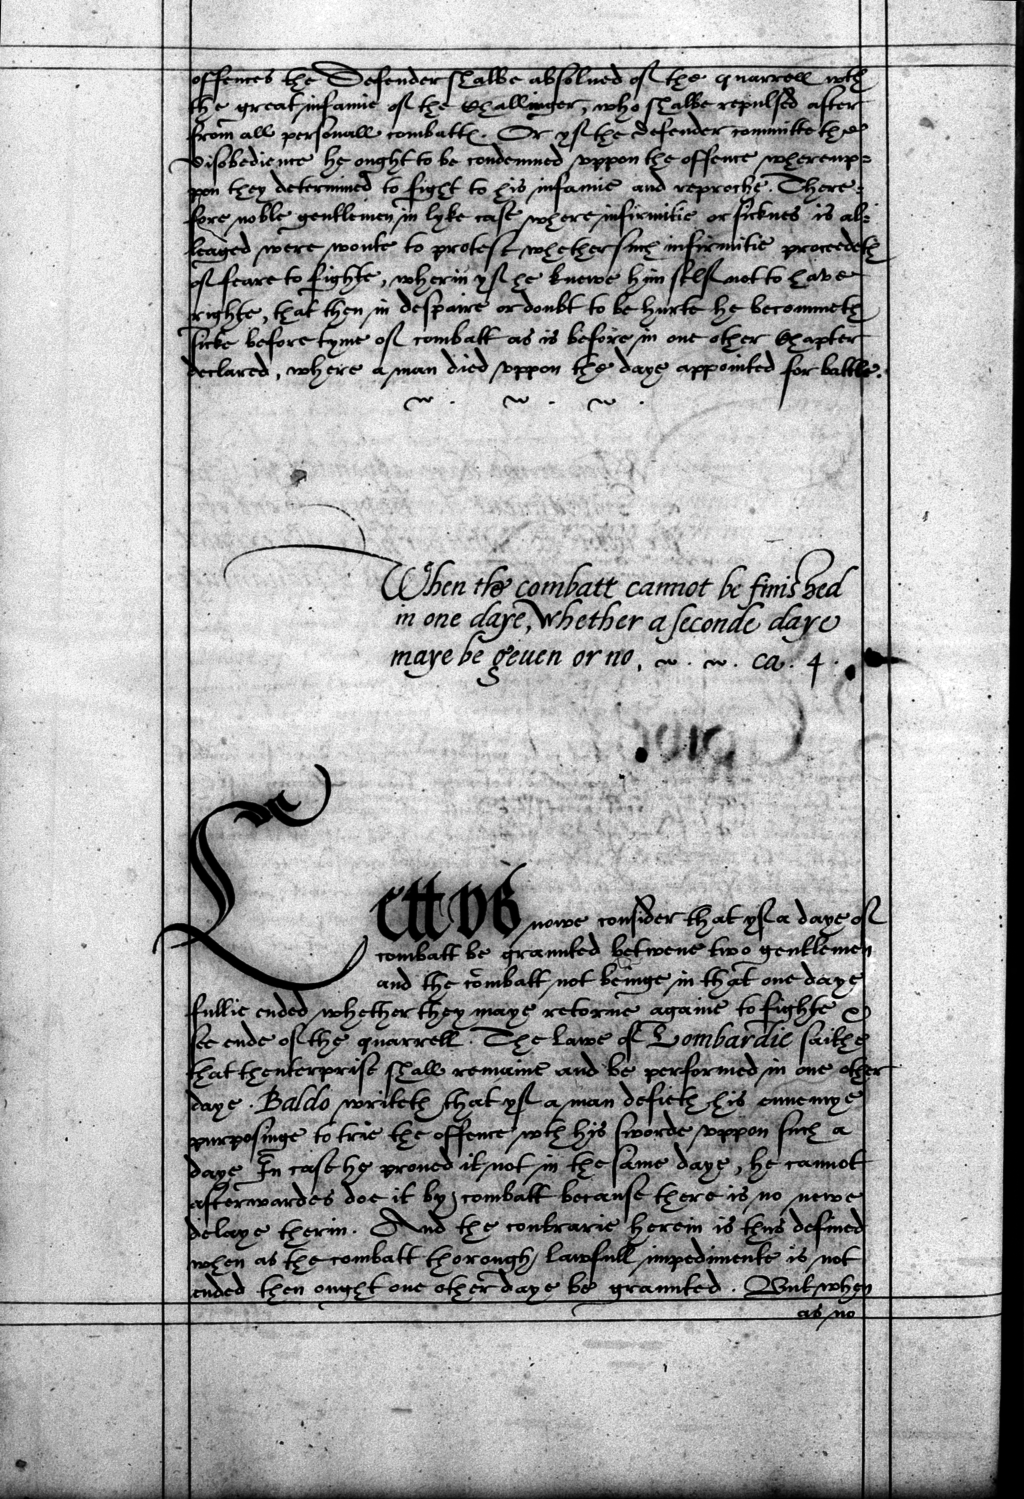 offences the Defender shalbe absolued of the quarrell wth
the great infamie of the Challinger, who shalbe repulsed after
from all personall combatt. Or yf the defender committe the
disobedience he ought to be condemned vppon the offence wherevp=
pon they determined to fight to his infamie and reproche. There=
fore noble gentlemen in lyke case where infirmitie or sicknes is al=
leaged were wonte to protest whether such infirmitie proceedeth
of feare to fighte, wherin yf he knewe him self not to have
righte, that then in despaire or doubt to be hurte he becommeth
sicke before tyme of combatt as is before in one other Chapter
declared, where a man died vppon the daye appointed for battle.
When the combatt cannot be finished
in one daye, whether a seconde daye
maye be geuen or no, ca. 4.
Lett vs nowe consider that yf a daye of
combatt be graunted betwene two gentlemen
and the combatt not beinge in that one daye
fullie ended whether they maye retorne againe to fighte &
see ende of the quarrell. The lawe of Lombardie saithe
that thenterprise shall remaine and be performed in one other
daye. Baldo writeth that yf a man defieth his ennemye
purposinge to trie the offence wth his sworde vppon such a
daye In case he proued it not in the same daye, he cannot
afterwardes doe it by combatt because there is no newe
delaye therin. And the contrarie herein is thus defined
when as the combatt thorough lawfull impedimente is not
ended then ought one other daye be graunted. But when
as no